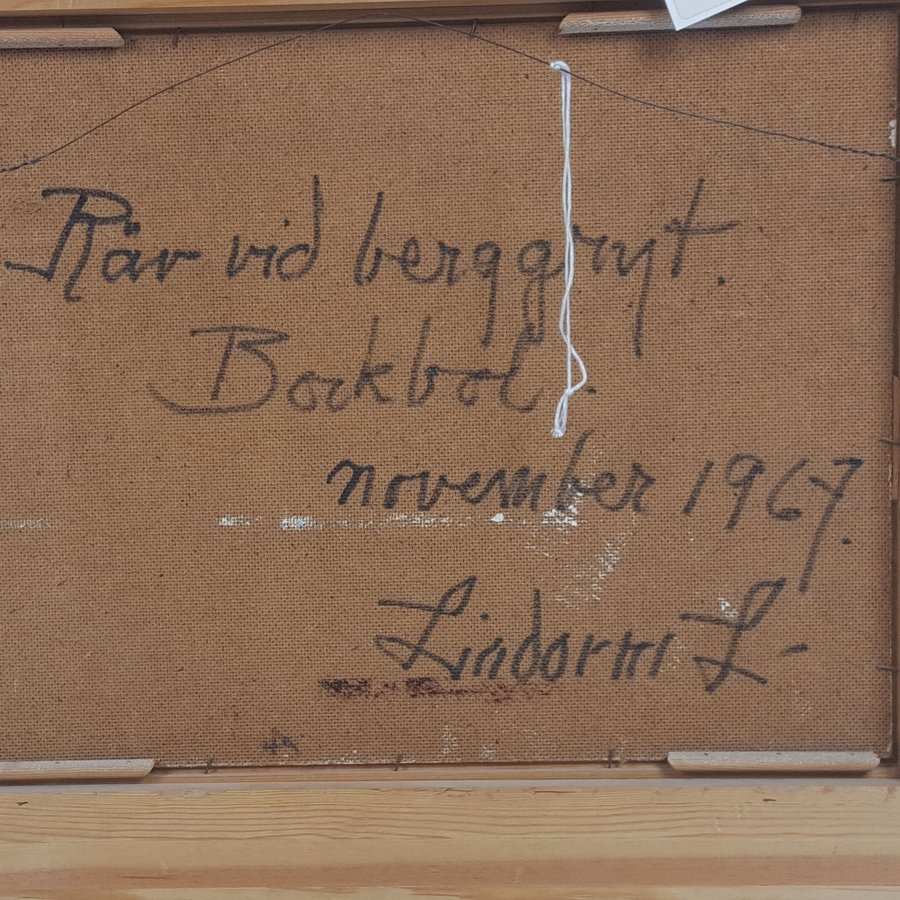 Räv vid berggryt.
Bockbol.
november 1967.
Lindorm L-